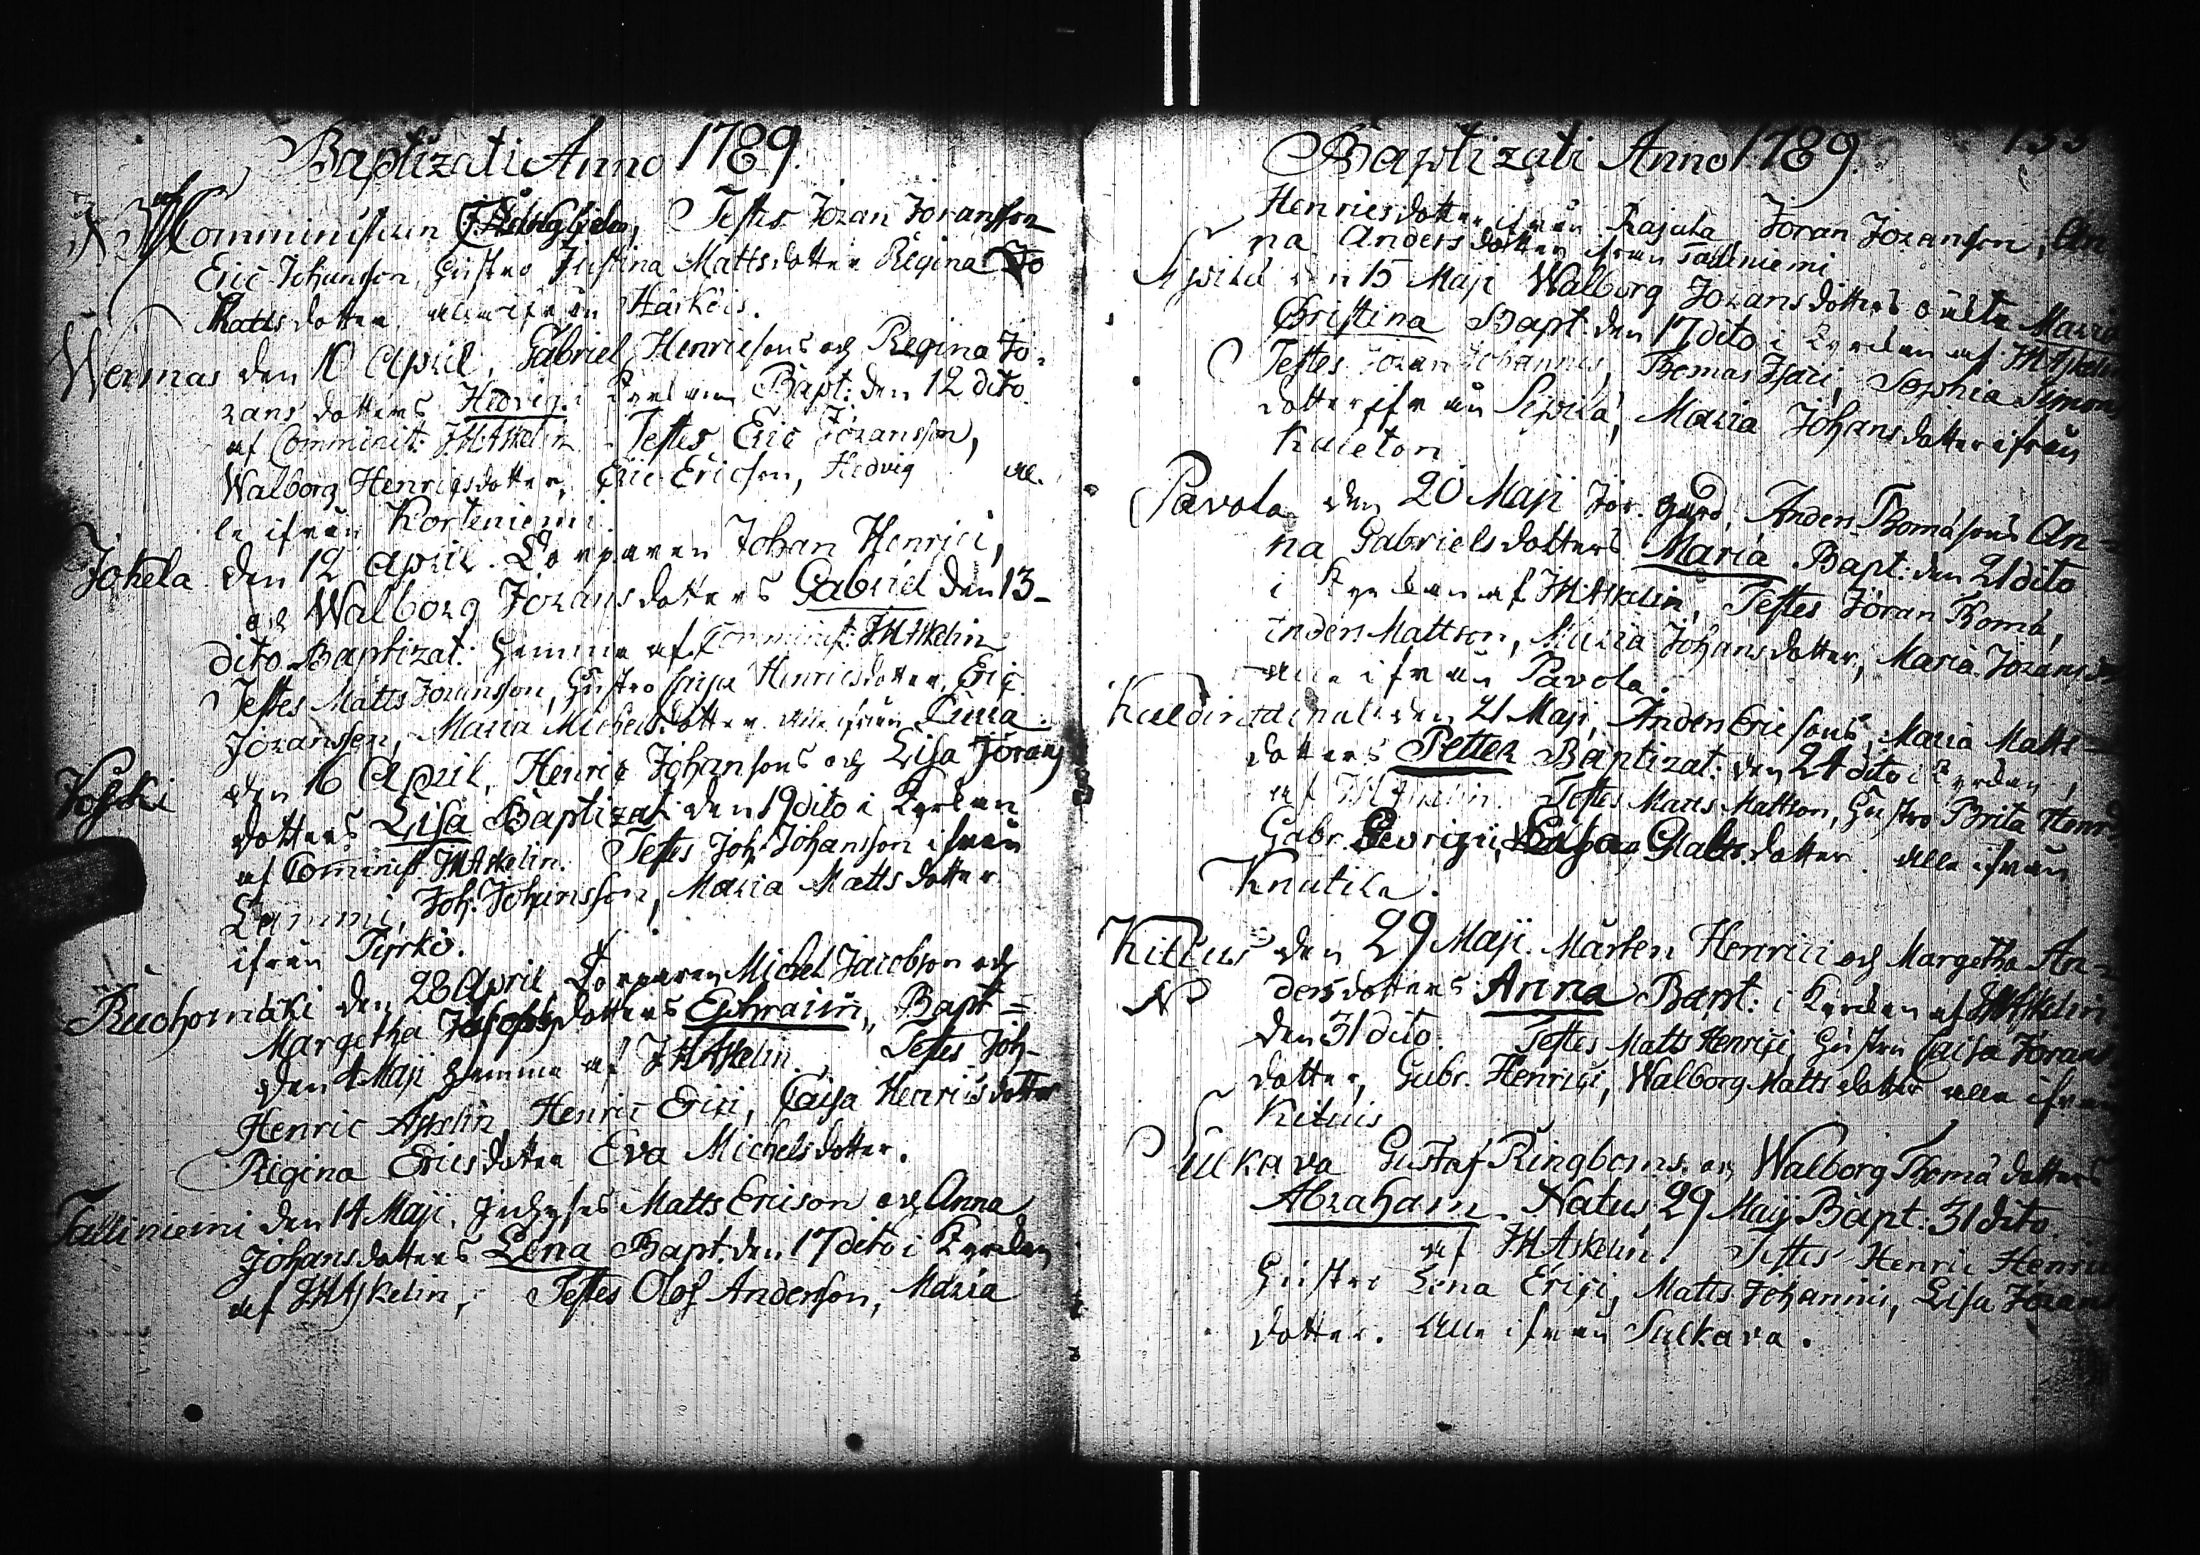 Baptizati Anno 1789.
af Comministern Testes Joran Joransson
Eric Johansson, hustro Justina Mattsdotter Regina Jo
Mattsdotter alle ifrån Härkéis.
Wermas den 10 April, Gabriel Henricsons och Regina Jo-
rans dotters Hedvig i Kyrkan Bapt: den 12 dito
af Comminist: JHAskelin Testes Eric Joransson,
Walborg Henricsdotter, Eric Ericson, Hedvig al-
le ifrån Korteniemi.
Jokela den 12 April. Torparen Johan Henrici,
och Walborg Joransdotters Gabriel den 13-
dito Baptizat: hemma af Comminist: JHAskelin
Testes Matts Joransson, hustro Caisa Henricsdotter, Eric
Joransson, Maria Michelsdotter alle ifrån
Koski den 16 April, Henric Johansons och Lisa Jorans
dotters Lisa Baptizat: den 19 dito i Kyrkan
af Cominist JHAskelin. Testes Joh: Johansson ifrån
Lammi, Joh: Johansson, Maria Matts dotter
ifrån Tyrkö.
Ruohomäki den 28 April, Torparen Michel Jacobson och
Margetha dotters Ephraim, Bapt=
den 4 Maji hemma af JHAskelin. Testes Joh-
Henric Askelin, Henric Erici, Caisa Henricsdotter
Regina Ericsdotter Eva Michelsdotter.
Talliniemi den 14 Maji. Matts Ericson och Anna
Johansdotters Lena Bapt. den 17 dito i Kyrkan
af JHAskelin, Testes Olof Anderson, Maria
Baptizati Anno 1789.
Henricsdotter ifrån Rajala Joran Joranson, An
na Andersdotter ifrån Talliniemi
den 15 Maji Walborg Joransdotters oäkta Maria
Christina Bapt: den 17 dito i Kyrkan af JHAskelin
Testes Joran Johannis, Thomas Isaci, Sophia Simons
dotter ifrån Maria Johansdotter ifrån
Kuleton
Pavola den 20 Maji Anders Thomæsons An=
na Gabrielsdotters Maria Bapt: den 21 dito
i Kyrkan af JHAskelin, Testes Joran Thomæ,
Anders Mattson, Maria Johansdotter, Maria Joransdr
alle ifrån Pavola.
den 21 Maji, Anders Ericsons, Maria Matts=
dotters Petter Baptizat: den 24 dito i Kyrkan,
af JHAskelin. Testes Matts Mattson, hustro Brita Henrics
Gabr. dotter alle ifrån
Knutila.
Kituis den 29 Maji. Mårten Henrici och Margetha An=
dersdotters Anna Bapt: i Kyrkan af JHAskelin
den 31 dito. Testes Matts Henrici, hustru Caisa Jorans
dotter, Gabr. Henrici, Walborg Matts dotter alle ifrån
Kituis
Sulkava Gustaf Ringboms och Walborg Thomædotters
Abraham. Natus 29 Maij Bapt. 31 dito.
af JHAskelin. Testes Henric Henrici
hustro Lena Erici, Matts Johannis, Lisa Jorans
dotter. Alle ifrån Sulkava.